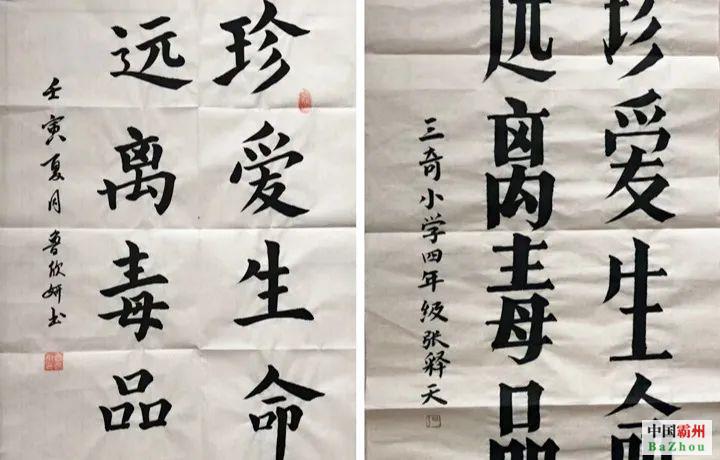 珍爱生命
远离毒品
壬寅夏月鲁欣妍书
珍爱生命
远离毒品
三奇小学四年级张释天
中国霸州
BaZhou